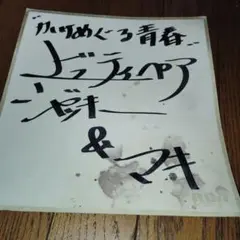 "かけめぐる青春"
ビューティペア
ジャッキー
&
マキ